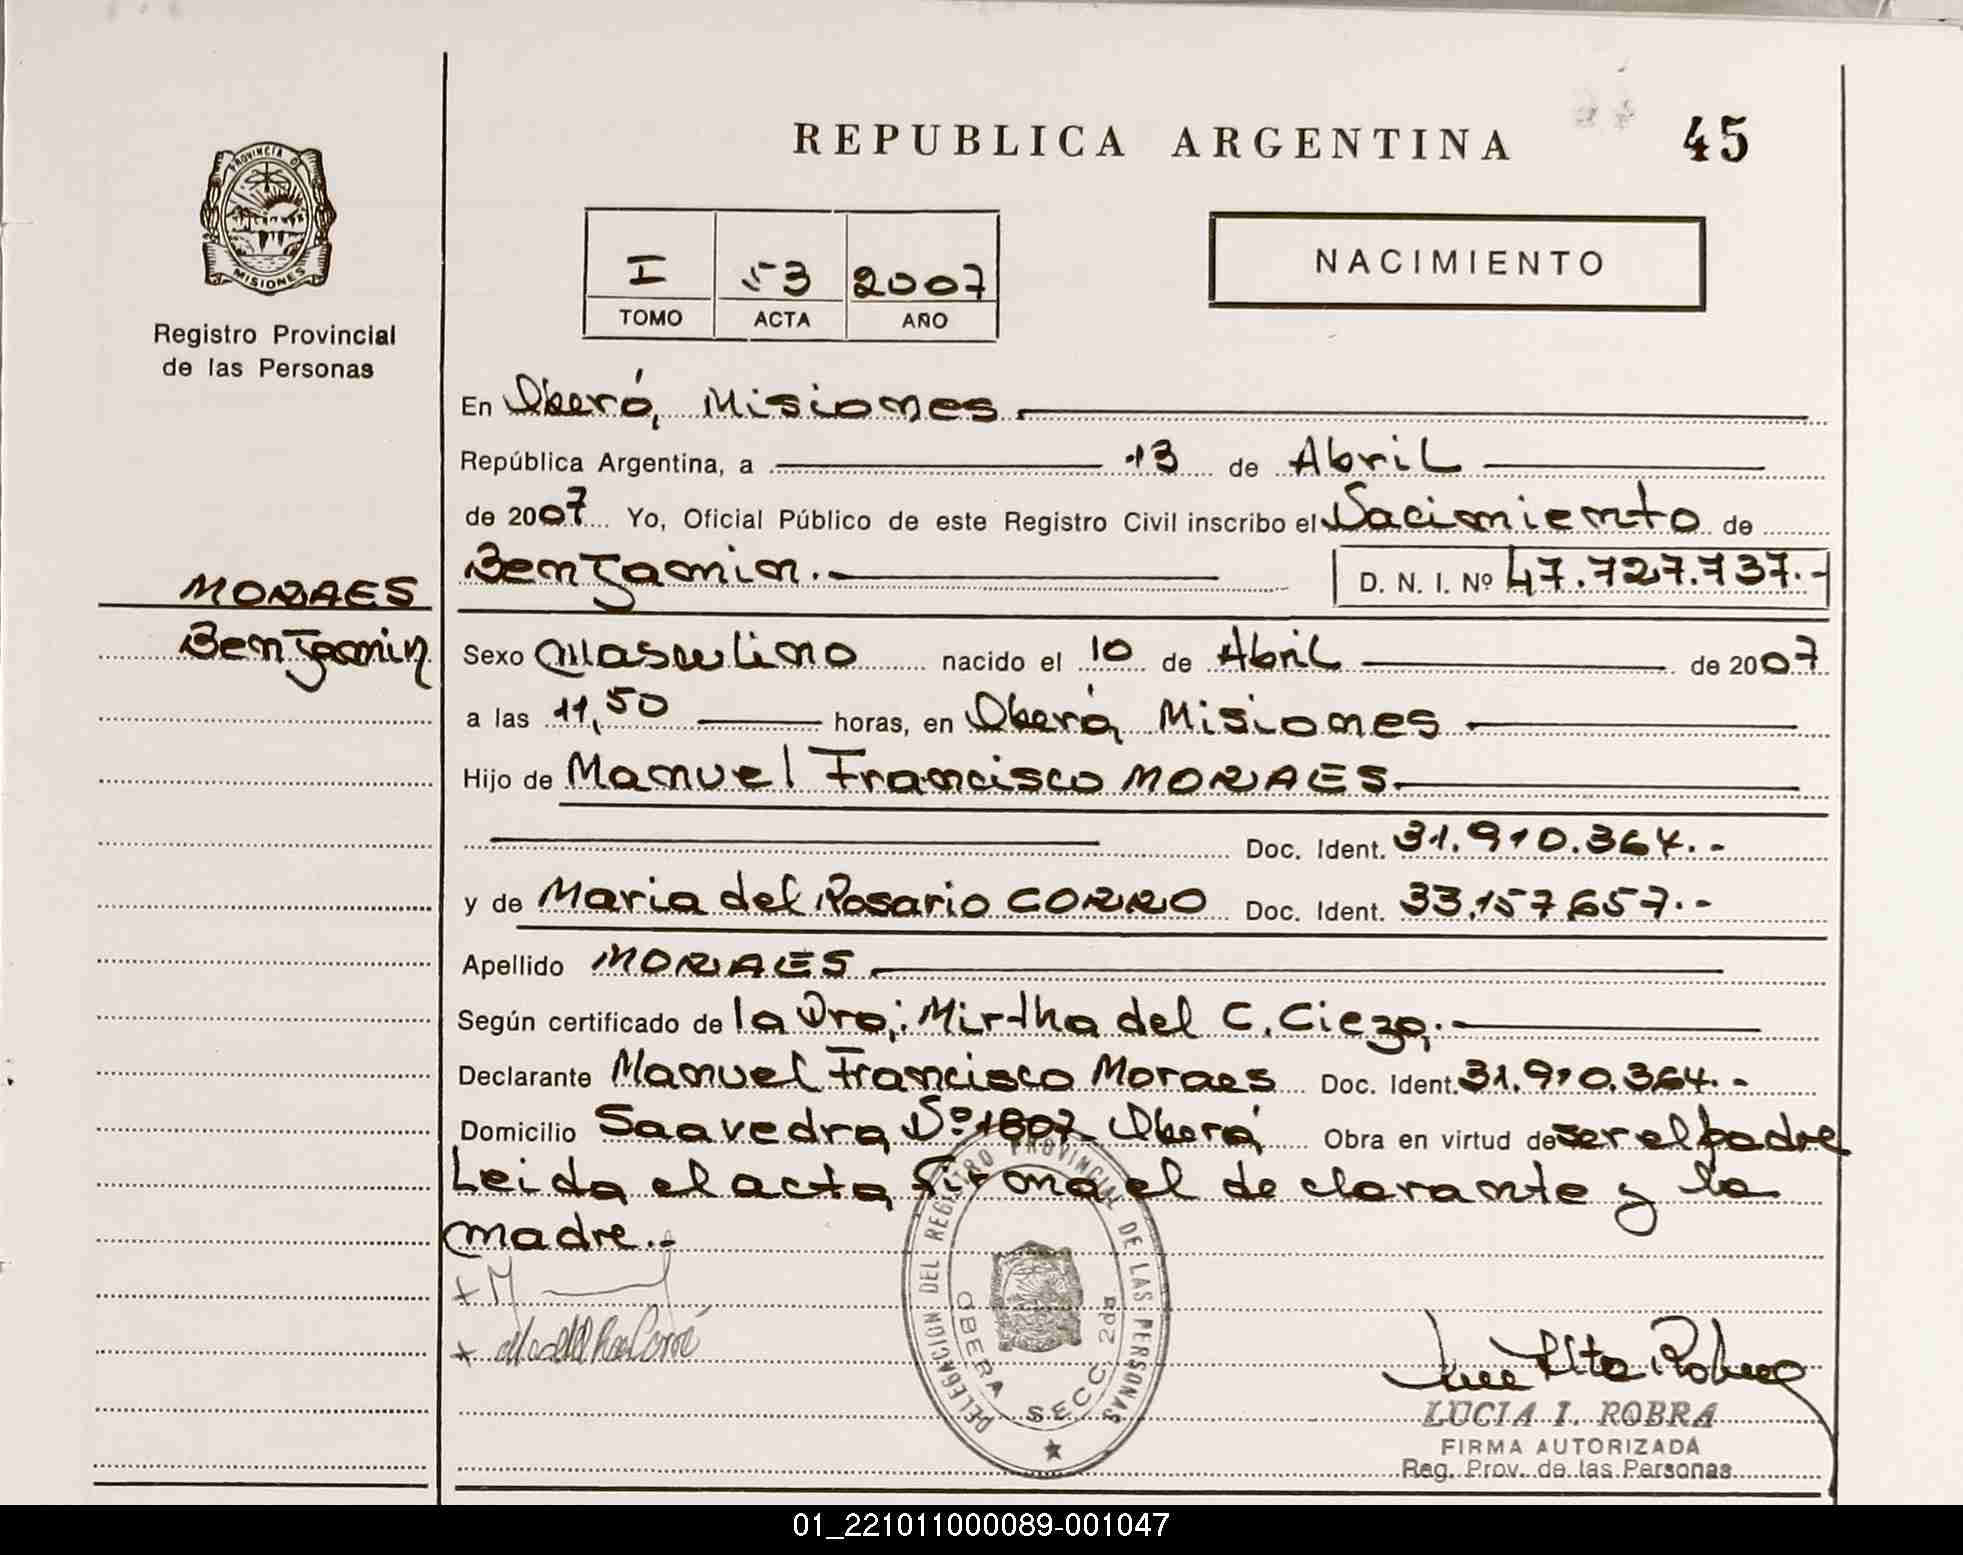 REPUBLICA ARGENTINA
45
PROVINCIA DE
MISIONES
Registro Provincial
de las Personas
I 53 2007
TOMO ACTA AÑO
NACIMIENTO
En Oberá, Misiones
República Argentina, a 13 de Abril
de 2007 Yo, Oficial Público de este Registro Civil inscribo el Nacimiento de
Benjamin.
D. N. I. Nº 47.727.737.-
MORAES
Benjamin
Sexo Masculino nacido el 10 de Abril de 2007
a las 11,50 horas, en Oberá, Misiones
Hijo de Manuel Francisco MORAES
Doc. Ident. 31.910.364.-
y de Maria del Rosario CORRO Doc. Ident. 33.157.657.-
Apellido MORAES
Según certificado de la Dra.: Mirtha del C. Cieza.
Declarante Manuel Francisco Moraes Doc. Ident. 31.910.364.-
Domicilio Saavedra Nº 1807 Oberá Obra en virtud de ser el padre
Leida el acta, firma el declarante y la
madre.-
DELEGACION DEL REGISTRO PROVINCIAL DE LAS PERSONAS
OBERA SECC. 2da
LUCIA I. ROBRA
FIRMA AUTORIZADA
Reg. Prov. de las Personas
01_221011000089-001047